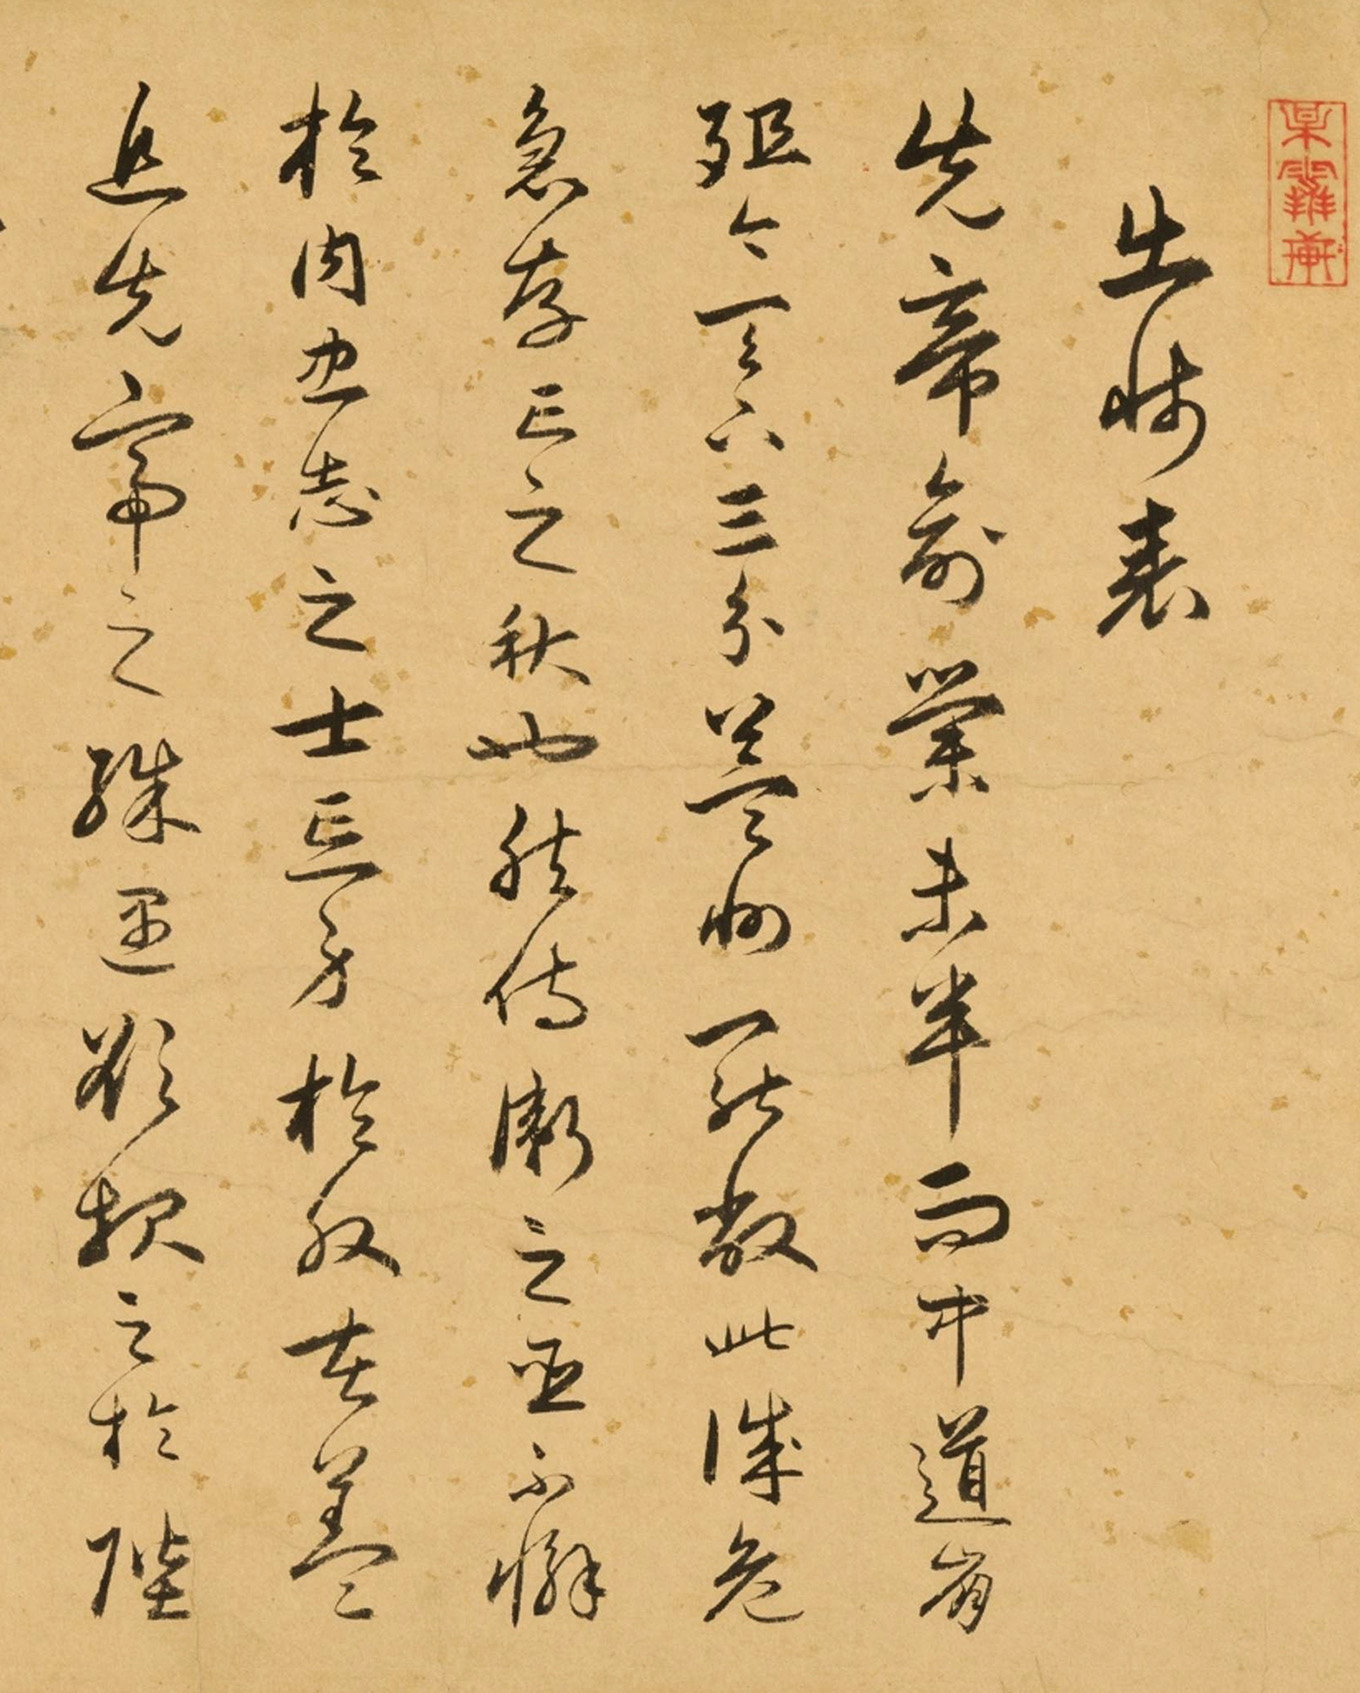 出師表
先帝創業未半而中道崩
殂今天下三分益州罷敝此誠危
急存亡之秋也然侍衛之臣不懈
於內忠志之士忘身於外者蓋
追先帝之殊遇欲報之於陛